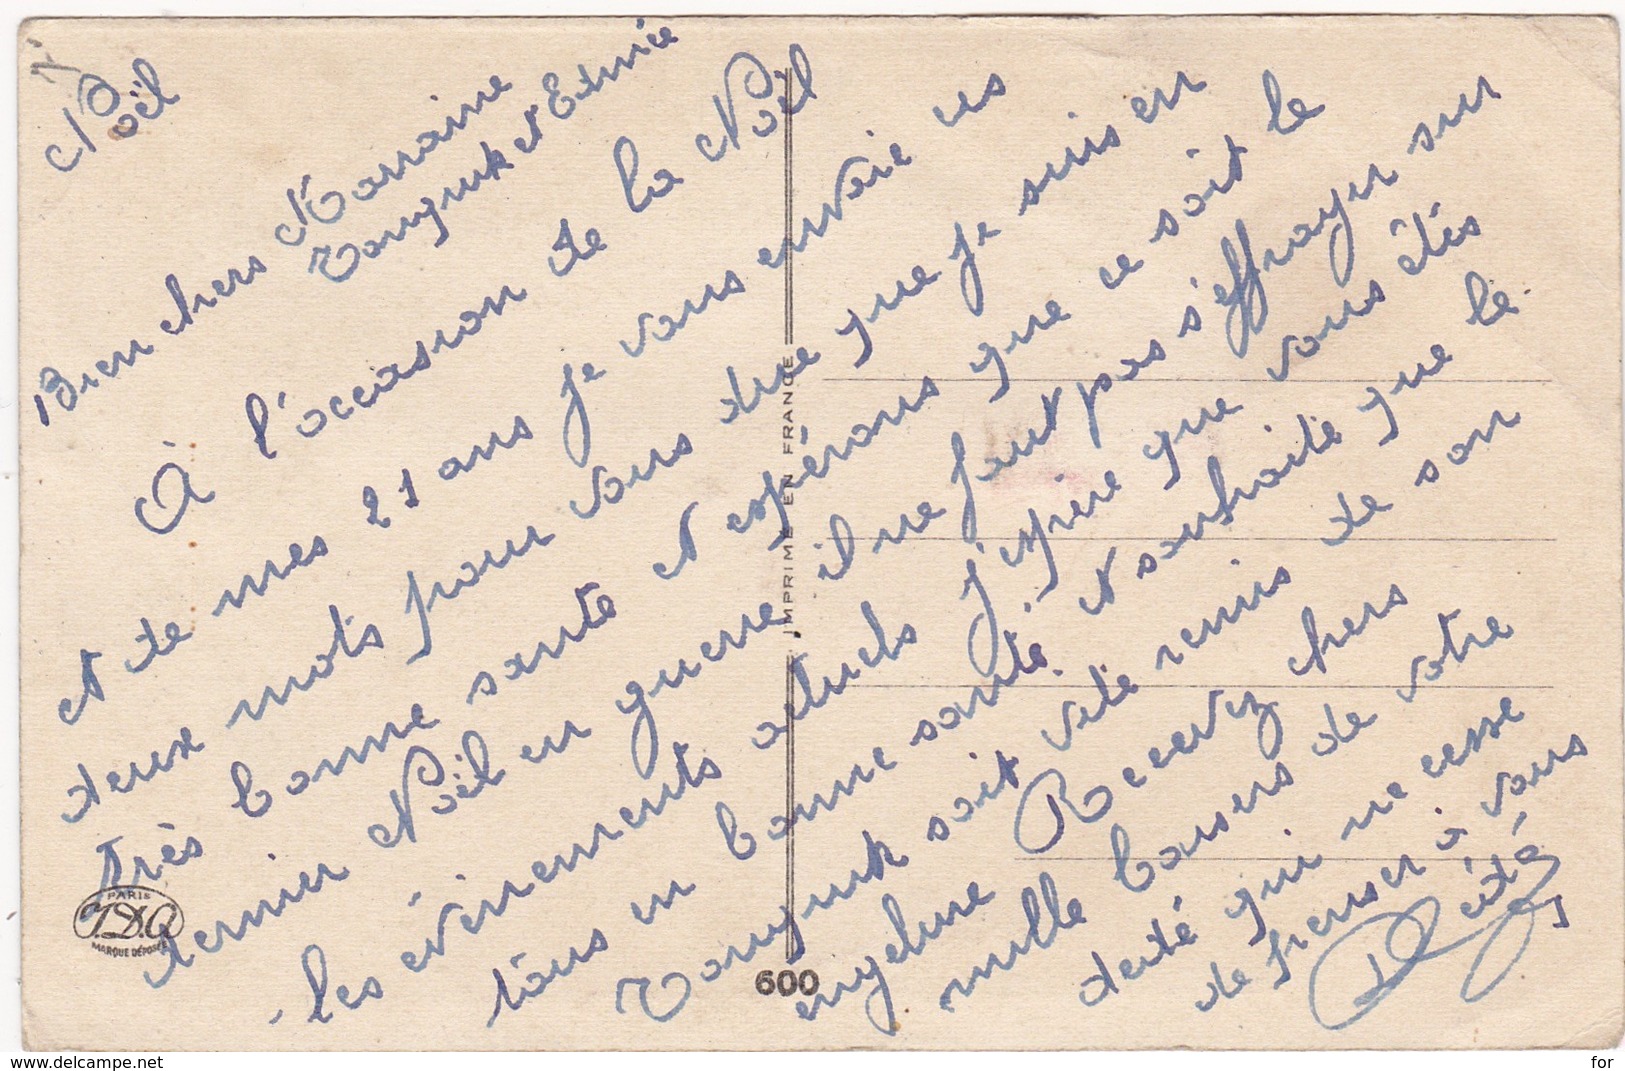 Noël
Bien chers Marraine
et Edmée
À l'occasion de la Noël
et de mes 21 ans je vous envoie ces
deux mots pour vous dire que je suis en
très bonne santé et espérons que ce soit le
dernier Noël en guerre il ne faut pas s'effrayer sur
les événements actuels j'espère que vous êtes
tous en bonne santé et souhaite que le
soit vite remis de son
engelure Recevez chers
mille baisers de votre
dédé qui ne cesse
de penser à vous
Dédé
IMPRIMÉ EN FRANCE
PARIS
J.D.C
MARQUE DÉPOSÉE
600
www.delcampe.net
for